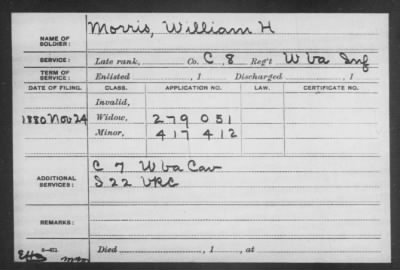 NAME OF SOLDIER: Morris, William H
SERVICE: Late rank, Co. C, 8 Reg't W Va Inf
TERM OF SERVICE: Enlisted , 1 Discharged , 1
DATE OF FILING. CLASS. APPLICATION NO. LAW. CERTIFICATE NO.
Invalid,
1880 Nov 24 Widow, 279 051
Minor, 417 412
C 7 W Va Cav
ADDITIONAL SERVICES: S 22 VRC
REMARKS:
Died , 1 , at